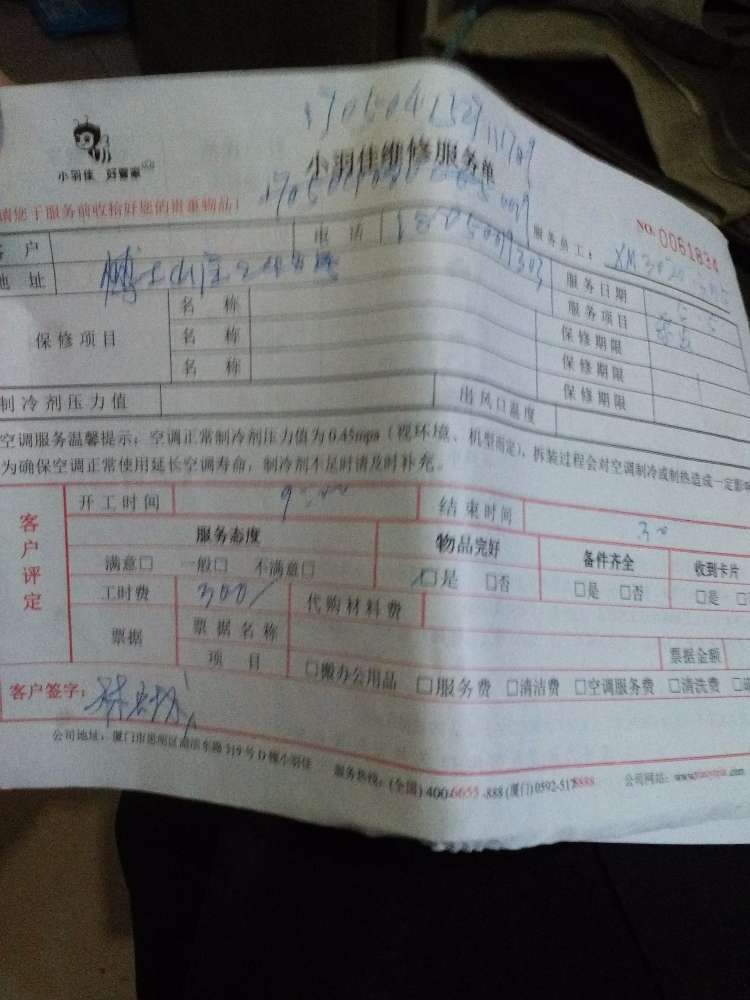 小羽佳 好管家
小羽佳维修服务单
请您于服务前收拾好您的贵重物品！
NO: 0061834
客 户
电 话
服务员工：
地 址
服务日期
5-5
服务项目
保修项目
名 称
保修期限
名 称
保修期限
名 称
保修期限
制冷剂压力值
出风口温度
空调服务温馨提示：空调正常制冷剂压力值为0.45mpa（视环境、机型而定），拆装过程会对空调制冷或制热造成一定影
为确保空调正常使用延长空调寿命，制冷剂不足时请及时补充。
客户评定
开工时间 9:00
结束时间
服务态度
物品完好
备件齐全
收到卡片
满意□ 一般□ 不满意□
□是 □否
□是 □否
□是
工时费 300/
代购材料费
票据
票据名称
票据金额
项 目
□搬办公用品 □服务费 □清洁费 □空调服务费 □清洗费
客户签字：
公司地址：厦门市思明区湖滨东路319号D幢小羽佳 服务热线：(全国) 400-6655-888 (厦门) 0592-5178888 公司网站：